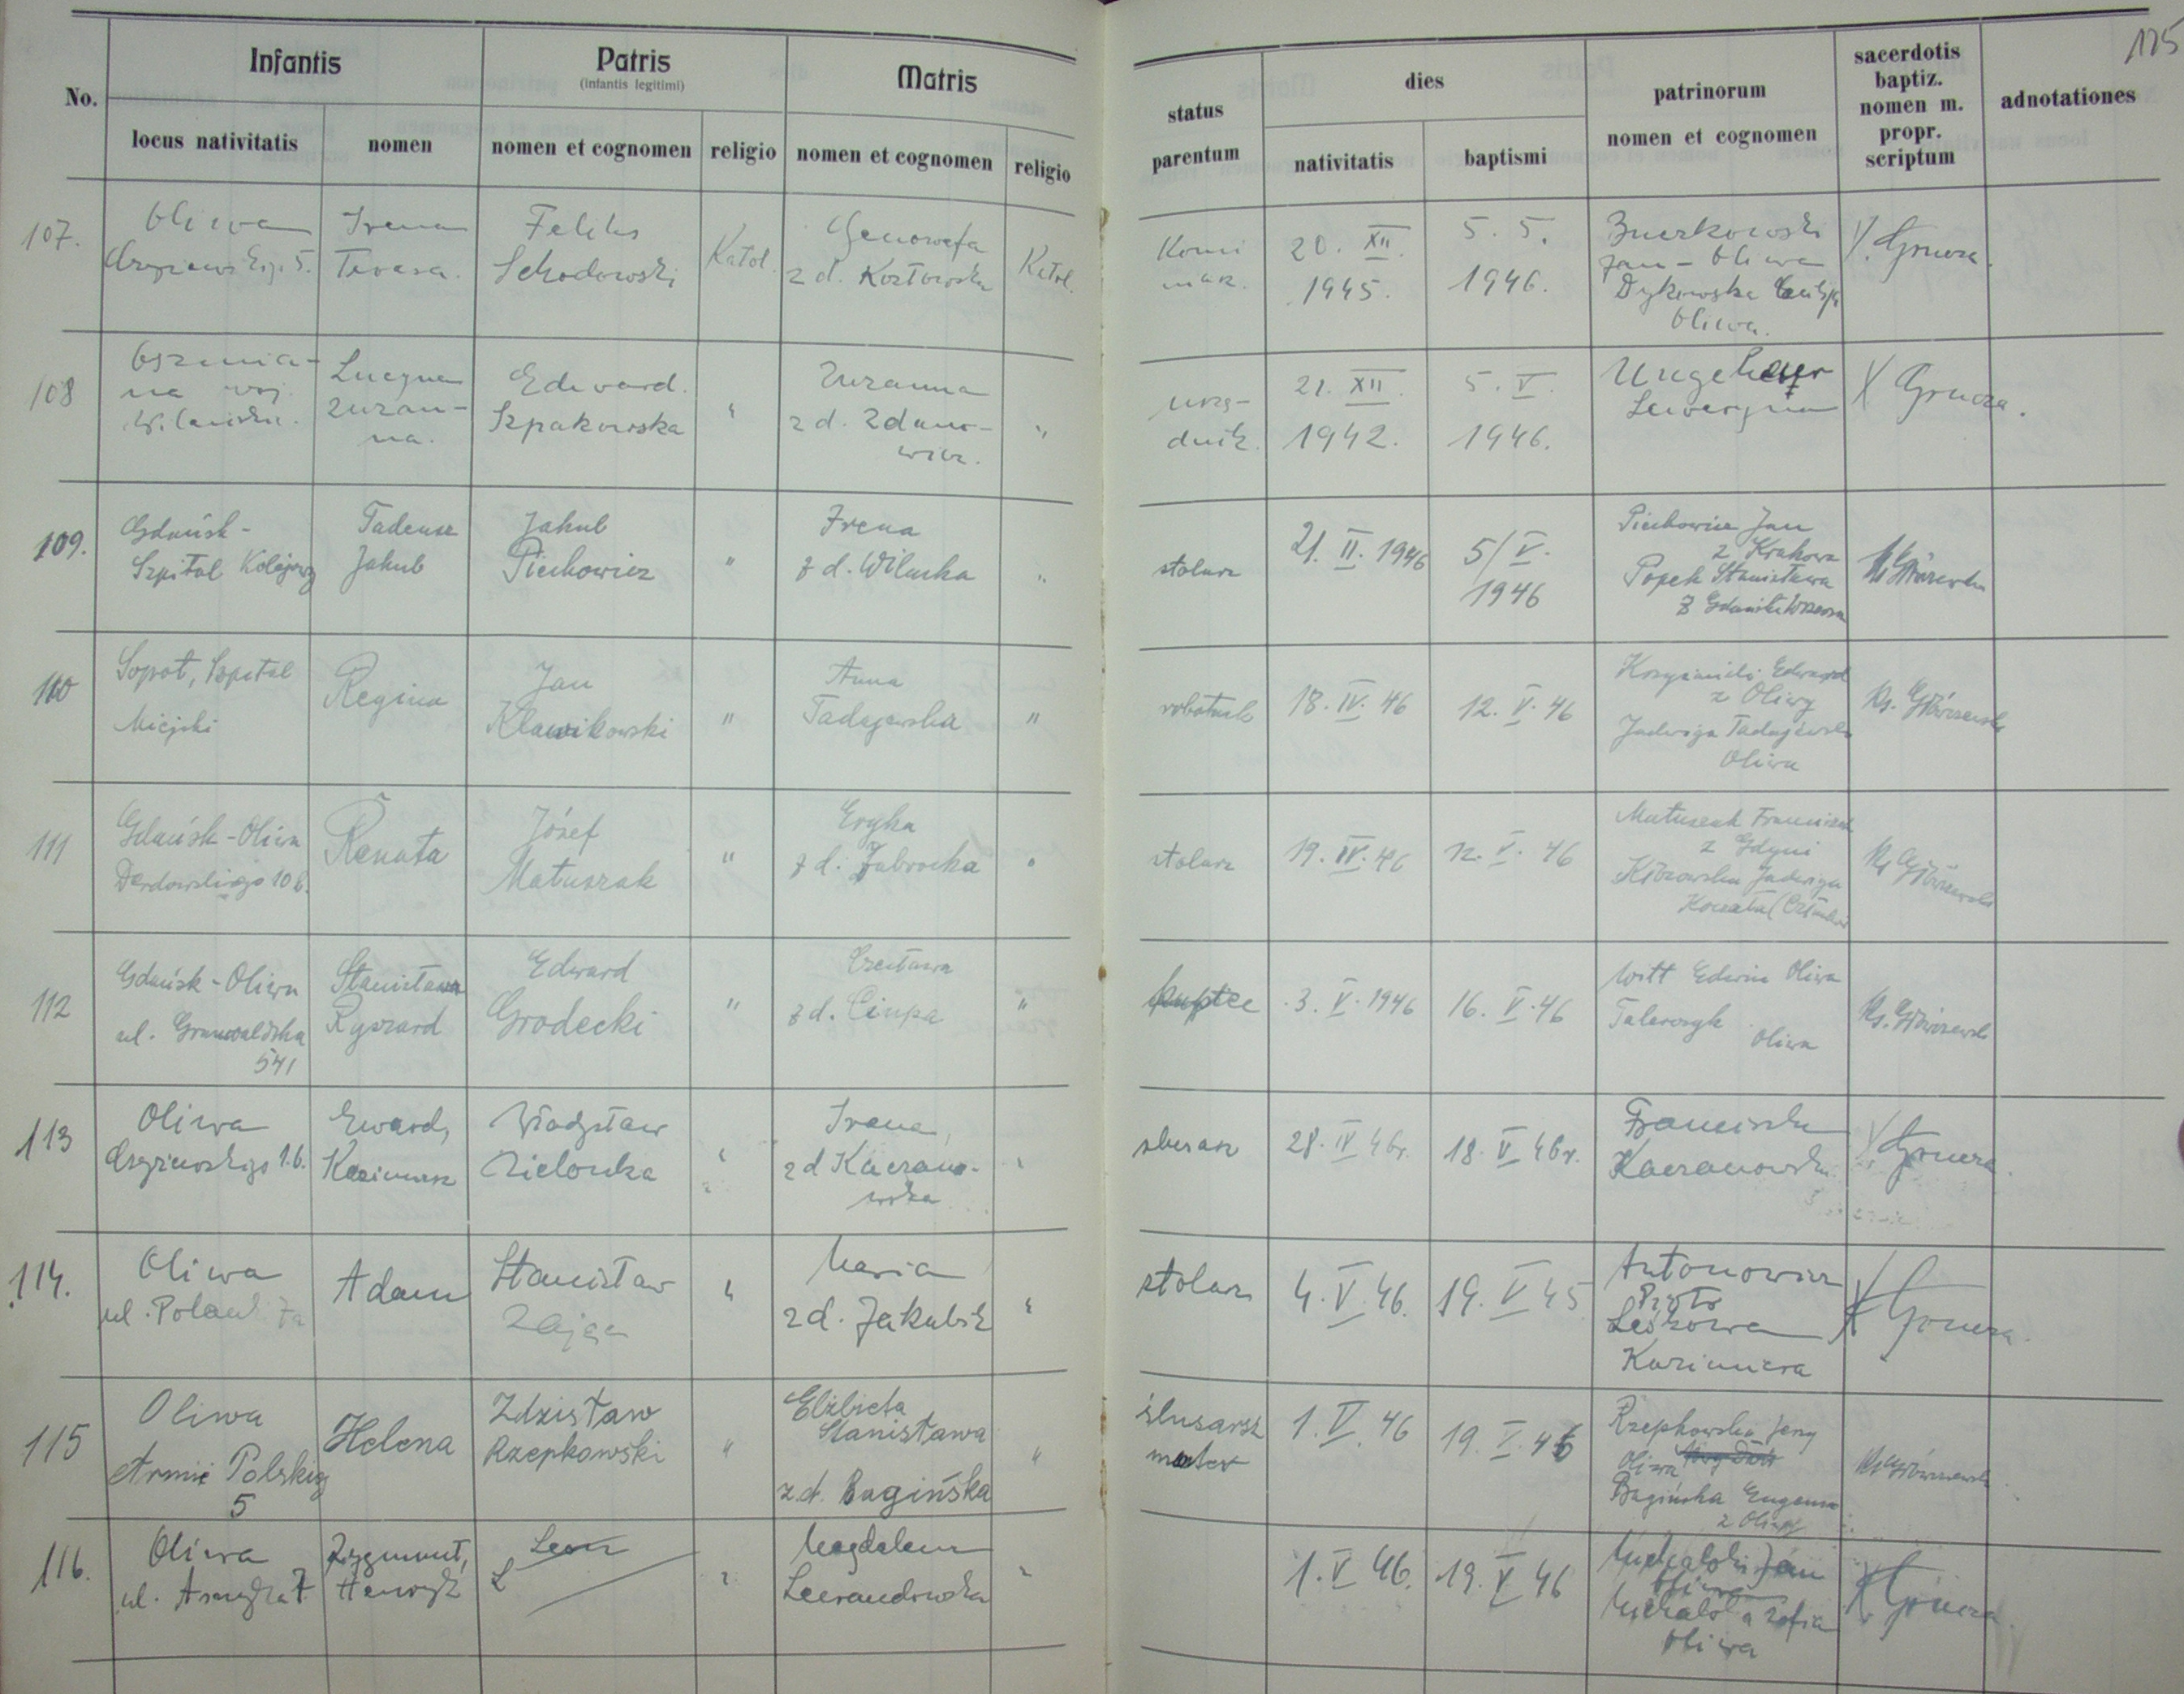 125
No.
Infantis
Patris
(infantis legitimi)
Matris
locus nativitatis
nomen
nomen et cognomen
religio
nomen et cognomen
religio
status
parentum
dies
nativitatis
baptismi
patrinorum
nomen et cognomen
sacerdotis
baptiz.
nomen m.
propr.
scriptum
adnotationes
107.
Oliwa
5.
Irena
Teresa.
Feliks
Schodowski
Katol.
Genowefa
z d. Kozłowska
Katol.
Komi
niarz.
20. XII.
1945.
5. 5.
1946.
Jan - Oliwa
Dykowska
Oliwa.
X. Grucza.
108
Oszmia-
na woj.
Lucyna
Zuzan-
na.
Edward.
Szpakowska
"
Zuzanna
z d. Zdano-
wicz.
"
urzę-
dnik.
21. XII.
1942.
5. V.
1946.
Ungeheuer
X Grucza.
109.
Gdańsk-
Szpital Kolejowy
Tadeusz
Jakub
Jakub
Piechowicz
"
Irena
z d. Wilucka
"
stolarz
21. II. 1946
5/V.
1946
Piechowicz Jan
z Krakowa
Popek Stanisława
z Gdańska Wrzeszcza
110
Sopot, Szpital
Miejski
Regina
Jan
Klawikowski
"
Anna
Tadajewska
"
robotnik
18. IV. 46
12. V. 46
Edward
z Oliwy
Jadwiga Tadajewska
Oliwa
Ks.
111
Gdańsk-Oliwa
Derdowskiego 10 b.
Renata
Józef
Matuszak
"
Eryka
z d. Zabrocka
"
stolarz
19. IV. 46
12. V. 46
Matuszak Franciszek
z Gdyni
Jadwiga
Ks
112
Gdańsk-Oliwa
ul. Grunwaldzka
541
Stanisława
Ryszard
Edward
Grodecki
"
Czesława
z d. Ciupa
"
kupiec
3. V. 1946
16. V. 46
Witt Edwin Oliwa
Talerczyk
Oliwa
Ks.
113
Oliwa
16.
Eward,
Kazimierz
Władysław
Zielonka
"
Irena,
z d Kaczano-
wska
"
slusarz
28. IV 46r.
18. V 46r.
Franciszka
Kaczanowska
X Grucza.
114.
Oliwa
ul. Polanki 7a
Adam
Stanisław
Zając
"
Maria
z d. Jakubik
"
stolarz
4. V. 46.
19. V 45
Antonowicz
Piotr
Leskowa
Kazimiera
X Grucza.
115
Oliwa
Armii Polskiej
5
Helena
Zdzisław
Rzepkowski
"
Elżbieta
Stanisława
z.d. Bagińska
"
ślusarz
1. V. 46
19. V. 46
Rzepkowski Jerzy
Oliwa
Bagińska Eugenia
z Oliwy
116.
Oliwa
Zygmunt,
Henryk
Leon
L
"
Magdalena
Lewandowska
"
1. V 46.
19. V 46
Michalski Jan
Oliwa
Zofia
Oliwa
X Grucza.